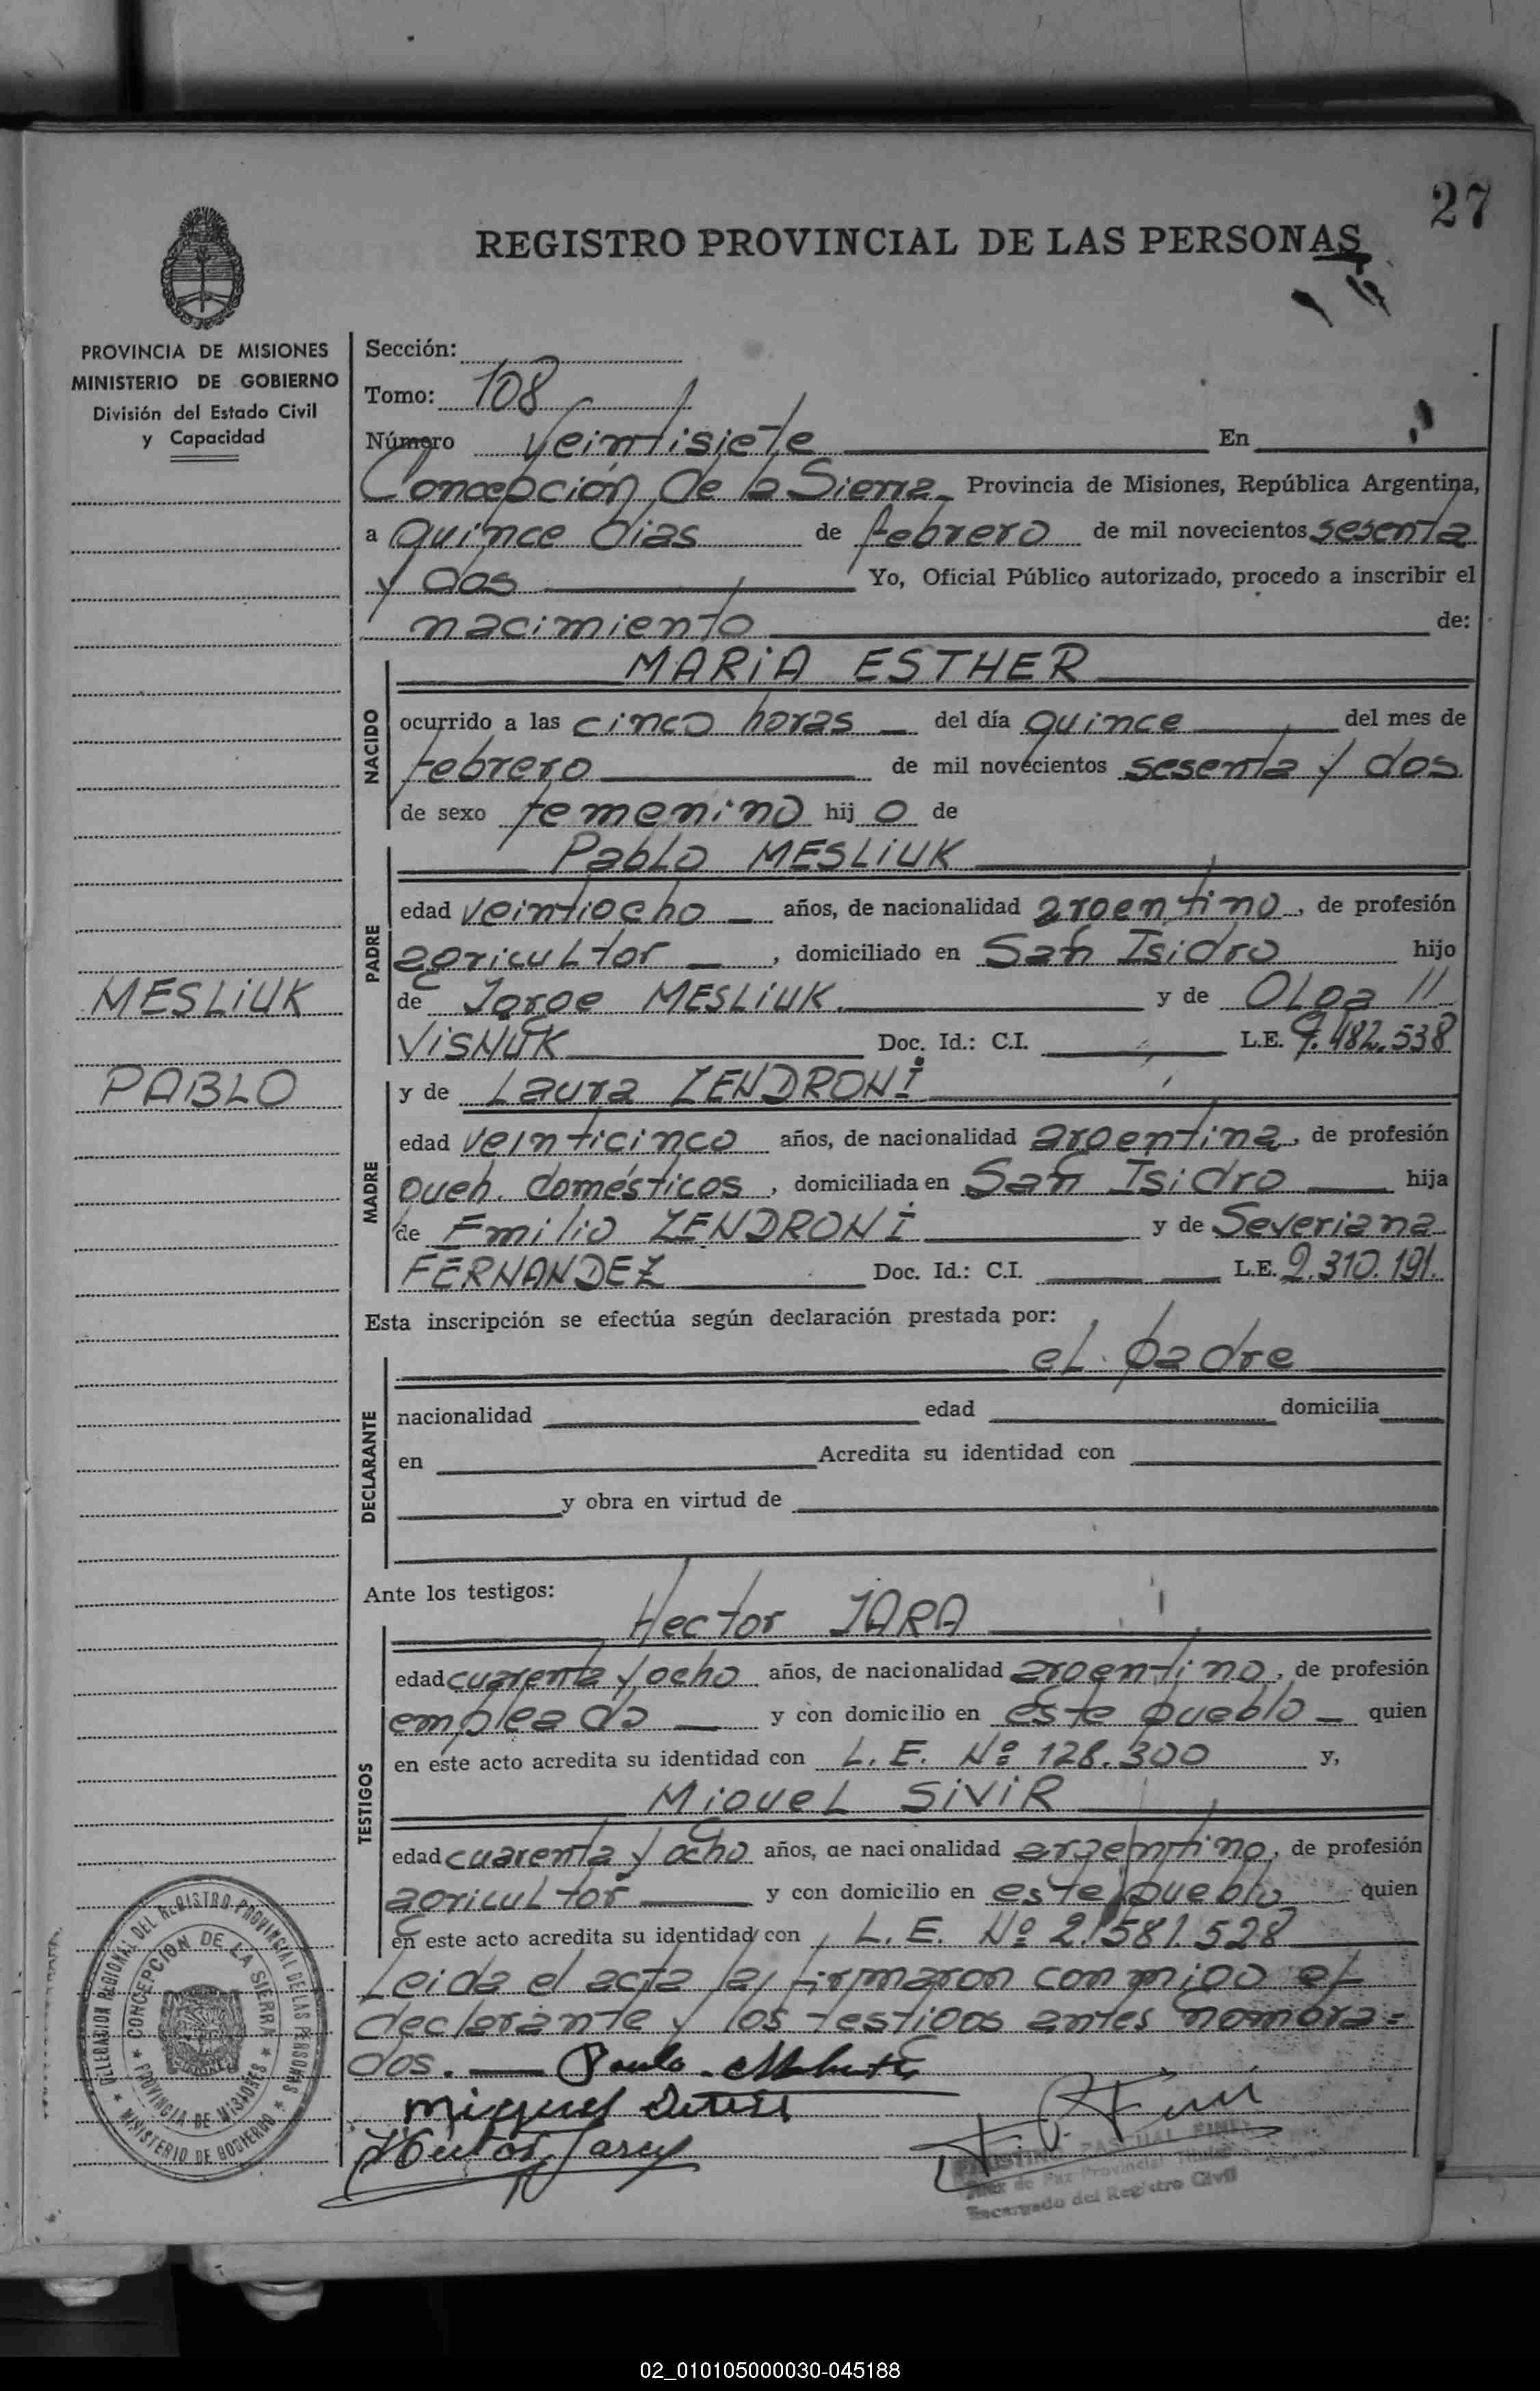 27
REGISTRO PROVINCIAL DE LAS PERSONAS
PROVINCIA DE MISIONES
MINISTERIO DE GOBIERNO
División del Estado Civil
y Capacidad
Sección:
Tomo: 108
Número veintisiete En
Concepción de la Sierra Provincia de Misiones, República Argentina,
a quince dias de febrero de mil novecientos sesenta
y dos Yo, Oficial Público autorizado, procedo a inscribir el
nacimiento de:
NACIDO
MARiA ESTHER
ocurrido a las cinco horas del día quince del mes de
febrero de mil novecientos sesenta y dos
de sexo femenino hij o de
PADRE
Pablo MESLiUK
edad veintiocho años, de nacionalidad argentino, de profesión
agricultor, domiciliado en San Isidro hijo
de Jorge MESLiUK. y de Olga
ViSNUK Doc. Id.: C.I. L.E. 7.482.538
MESLiUK
PABLO
MADRE
y de Laura ZENDRONi
edad veinticinco años, de nacionalidad argentina, de profesión
queh. domésticos, domiciliada en San Isidro hija
de Emilio ZENDRONi y de Severiana
FERNANDEZ Doc. Id.: C.I. L.E. 2.310.191.
Esta inscripción se efectúa según declaración prestada por:
DECLARANTE
el padre
nacionalidad edad domicilia
en Acredita su identidad con
y obra en virtud de
Ante los testigos:
TESTIGOS
Hector JARA
edad cuarenta y ocho años, de nacionalidad argentino, de profesión
empleado y con domicilio en este pueblo quien
en este acto acredita su identidad con L. E. Nº 128.300 y,
Miguel SiViR
edad cuarenta y ocho años, de nacionalidad argentino, de profesión
agricultor y con domicilio en este pueblo quien
en este acto acredita su identidad con L. E. Nº 2.581.528
Leida el acta la firmaron conmigo el
declarante y los testigos antes nombra=
dos.
Miguel
Hector Jara
DELEGACION REGIONAL DEL REGISTRO PROVINCIAL DE LAS PERSONAS
CONCEPCION DE LA SIERRA
PROVINCIA DE MISIONES
MINISTERIO DE GOBIERNO
PASCUAL
Juez de Paz Provincial Titular
Encargado del Registro Civil
02_010105000030-045188